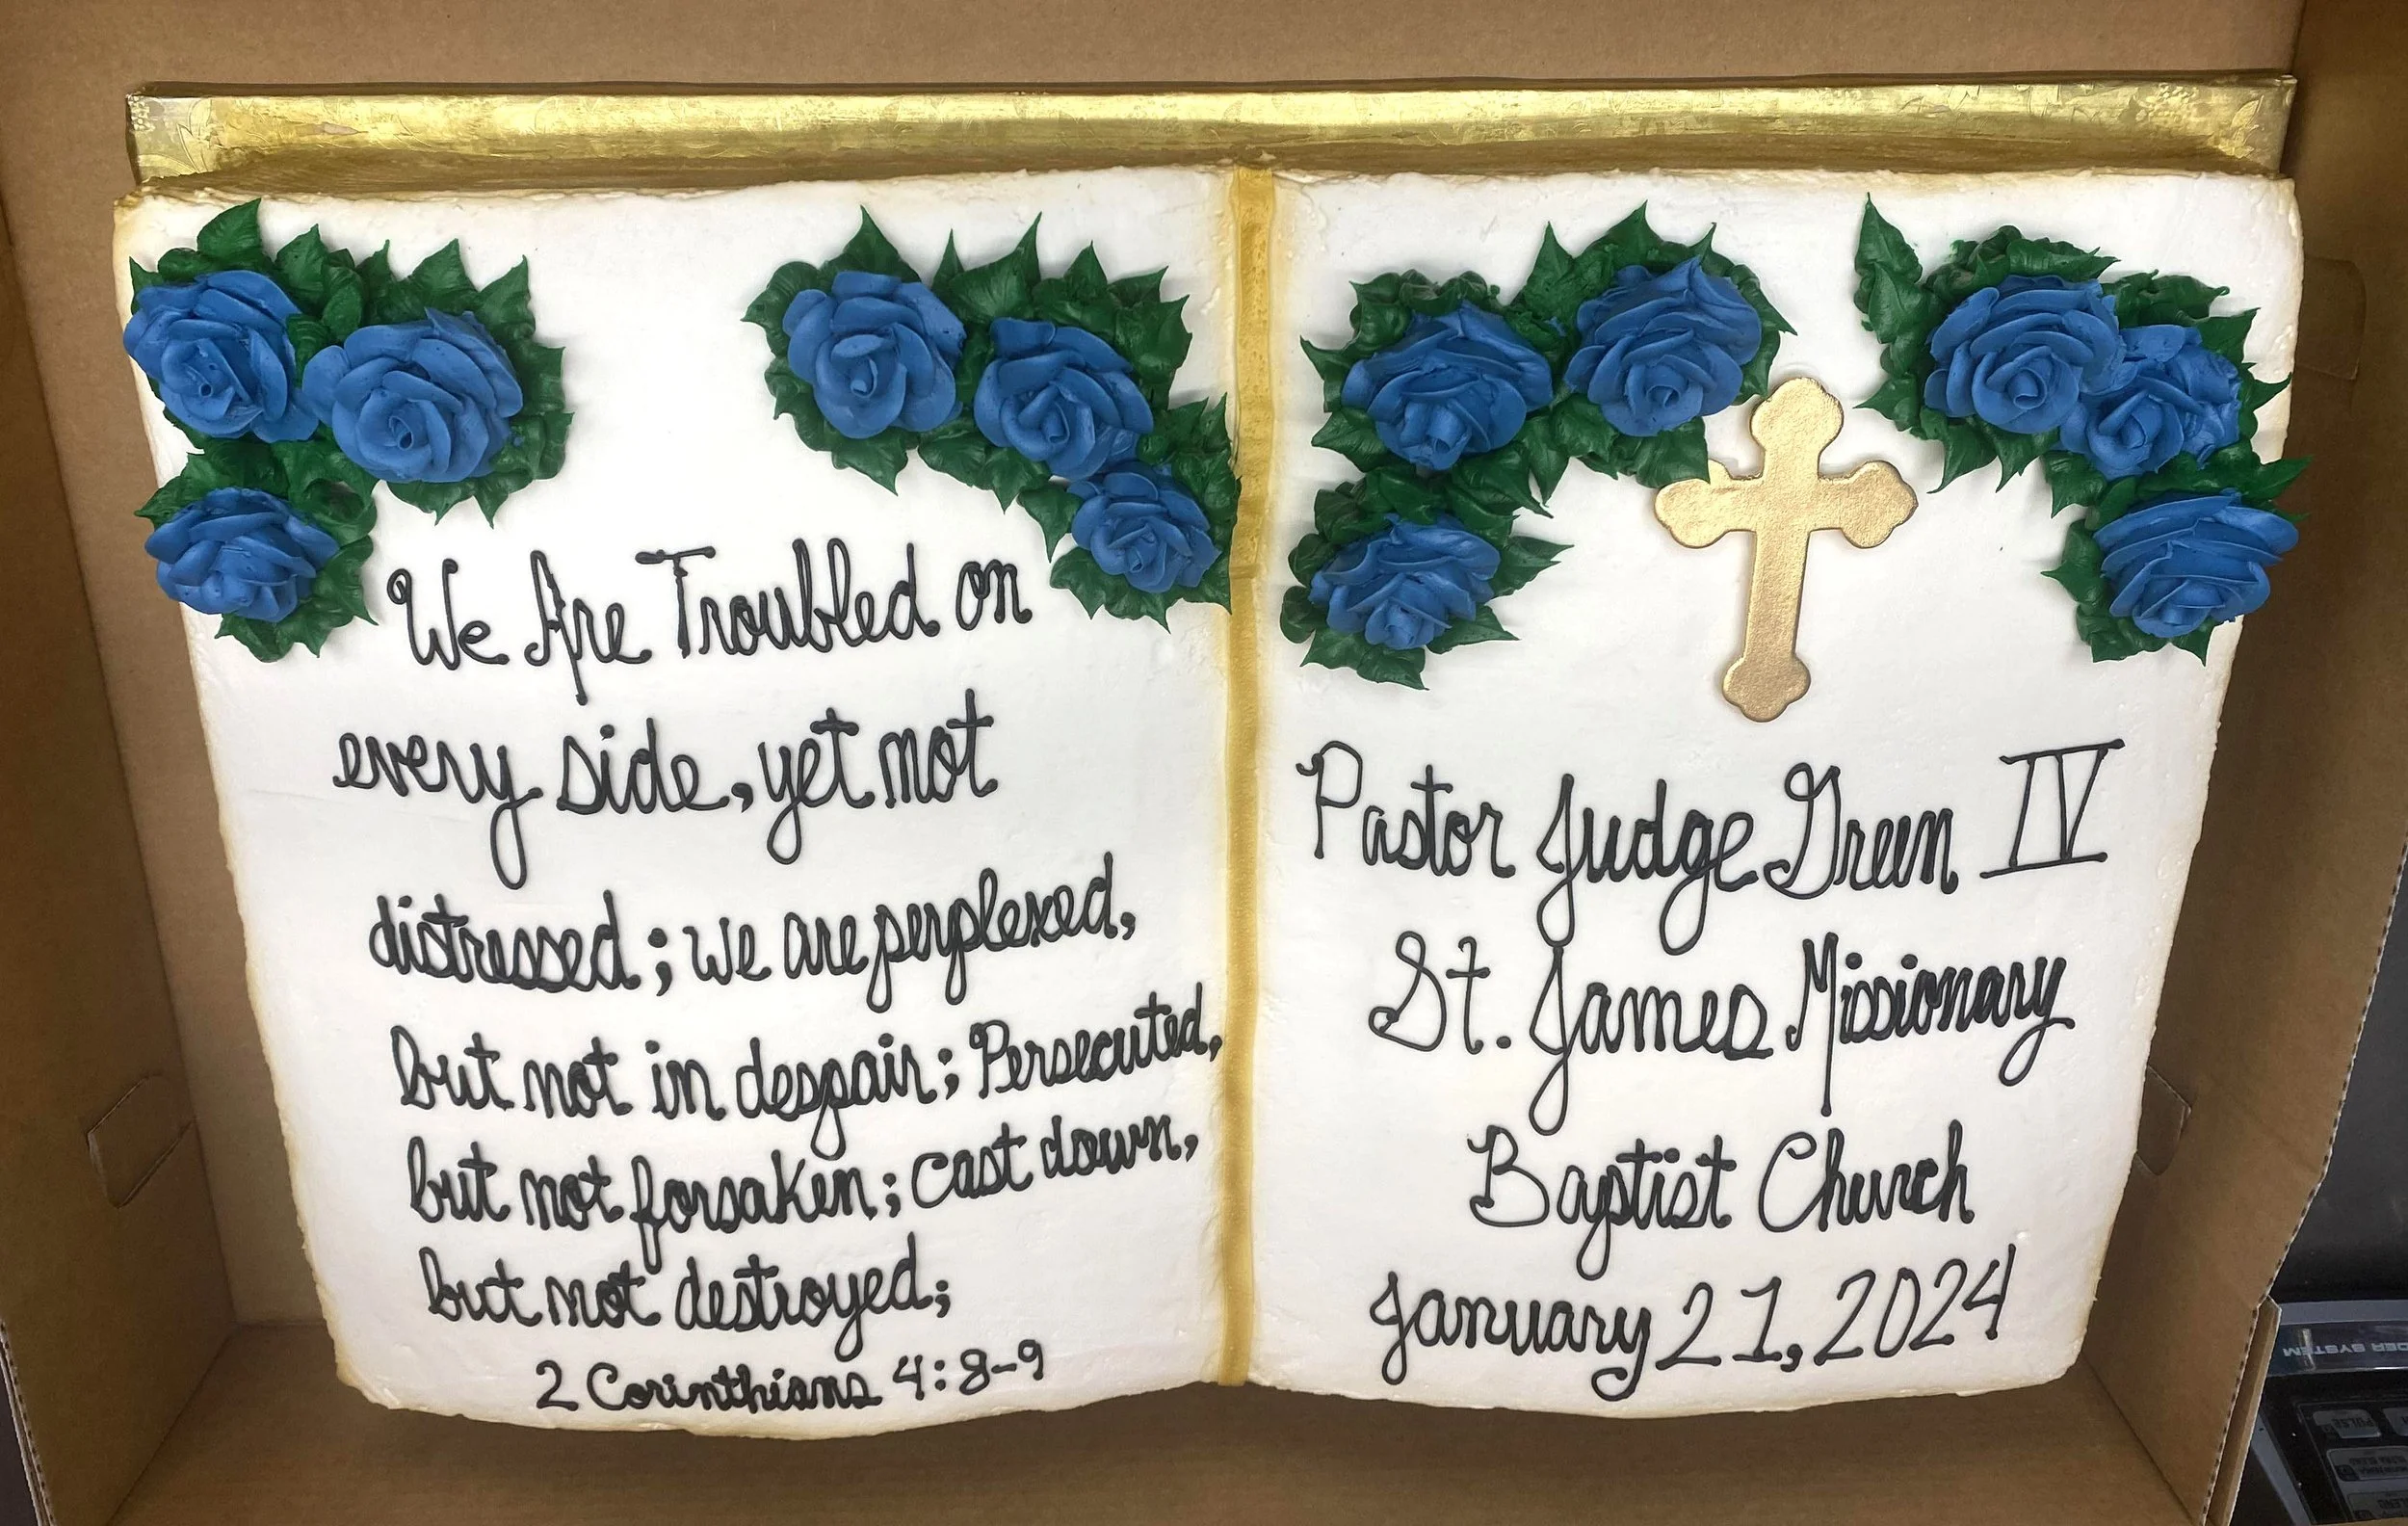 We Are Troubled on
every side, yet not
distressed; we are perplexed,
but not in despair; Persecuted,
but not forsaken; cast down,
but not destroyed;
2 Corinthians 4:8-9
Pastor Judge Green IV
St. James Missionary
Baptist Church
January 21, 2024
DER SYSTEM
PULSE